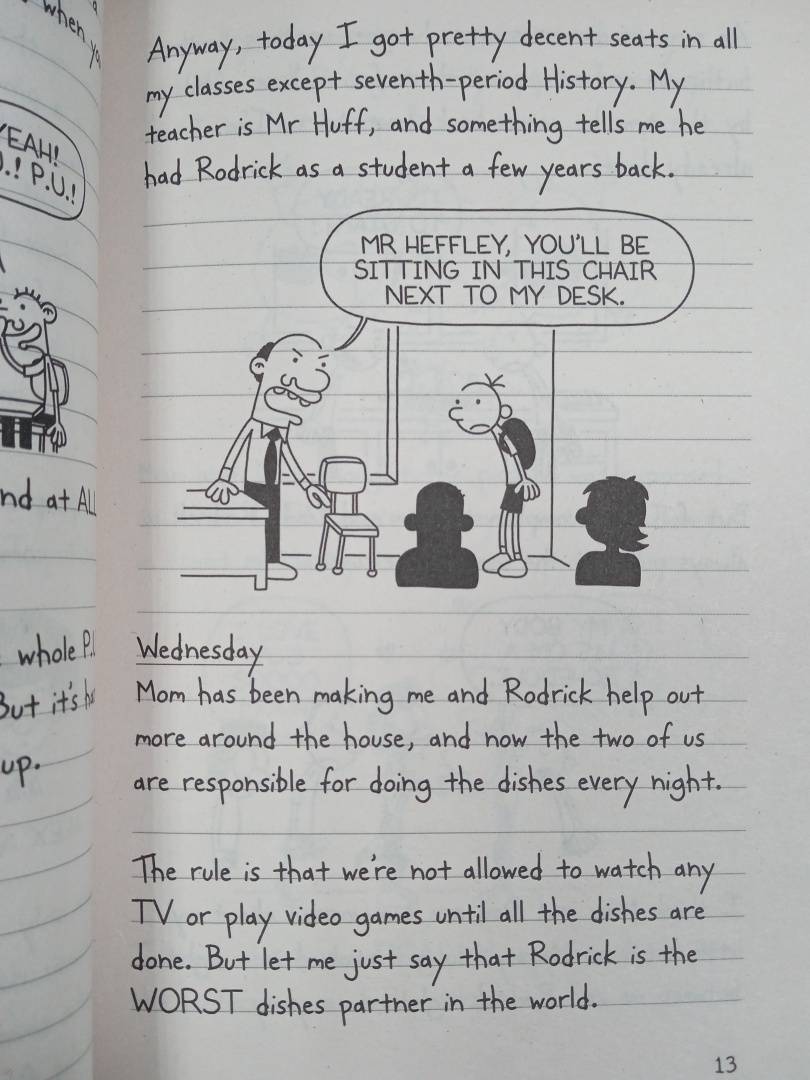 when
YEAH!
P.U.!
nd at AL
whole P.
But it's
up.
Anyway, today I got pretty decent seats in all
my classes except seventh-period History. My
teacher is Mr Huff, and something tells me he
had Rodrick as a student a few years back.
MR HEFFLEY, YOU'LL BE
SITTING IN THIS CHAIR
NEXT TO MY DESK.
Wednesday
Mom has been making me and Rodrick help out
more around the house, and now the two of us
are responsible for doing the dishes every night.
The rule is that we're not allowed to watch any
TV or play video games until all the dishes are
done. But let me just say that Rodrick is the
WORST dishes partner in the world.
13